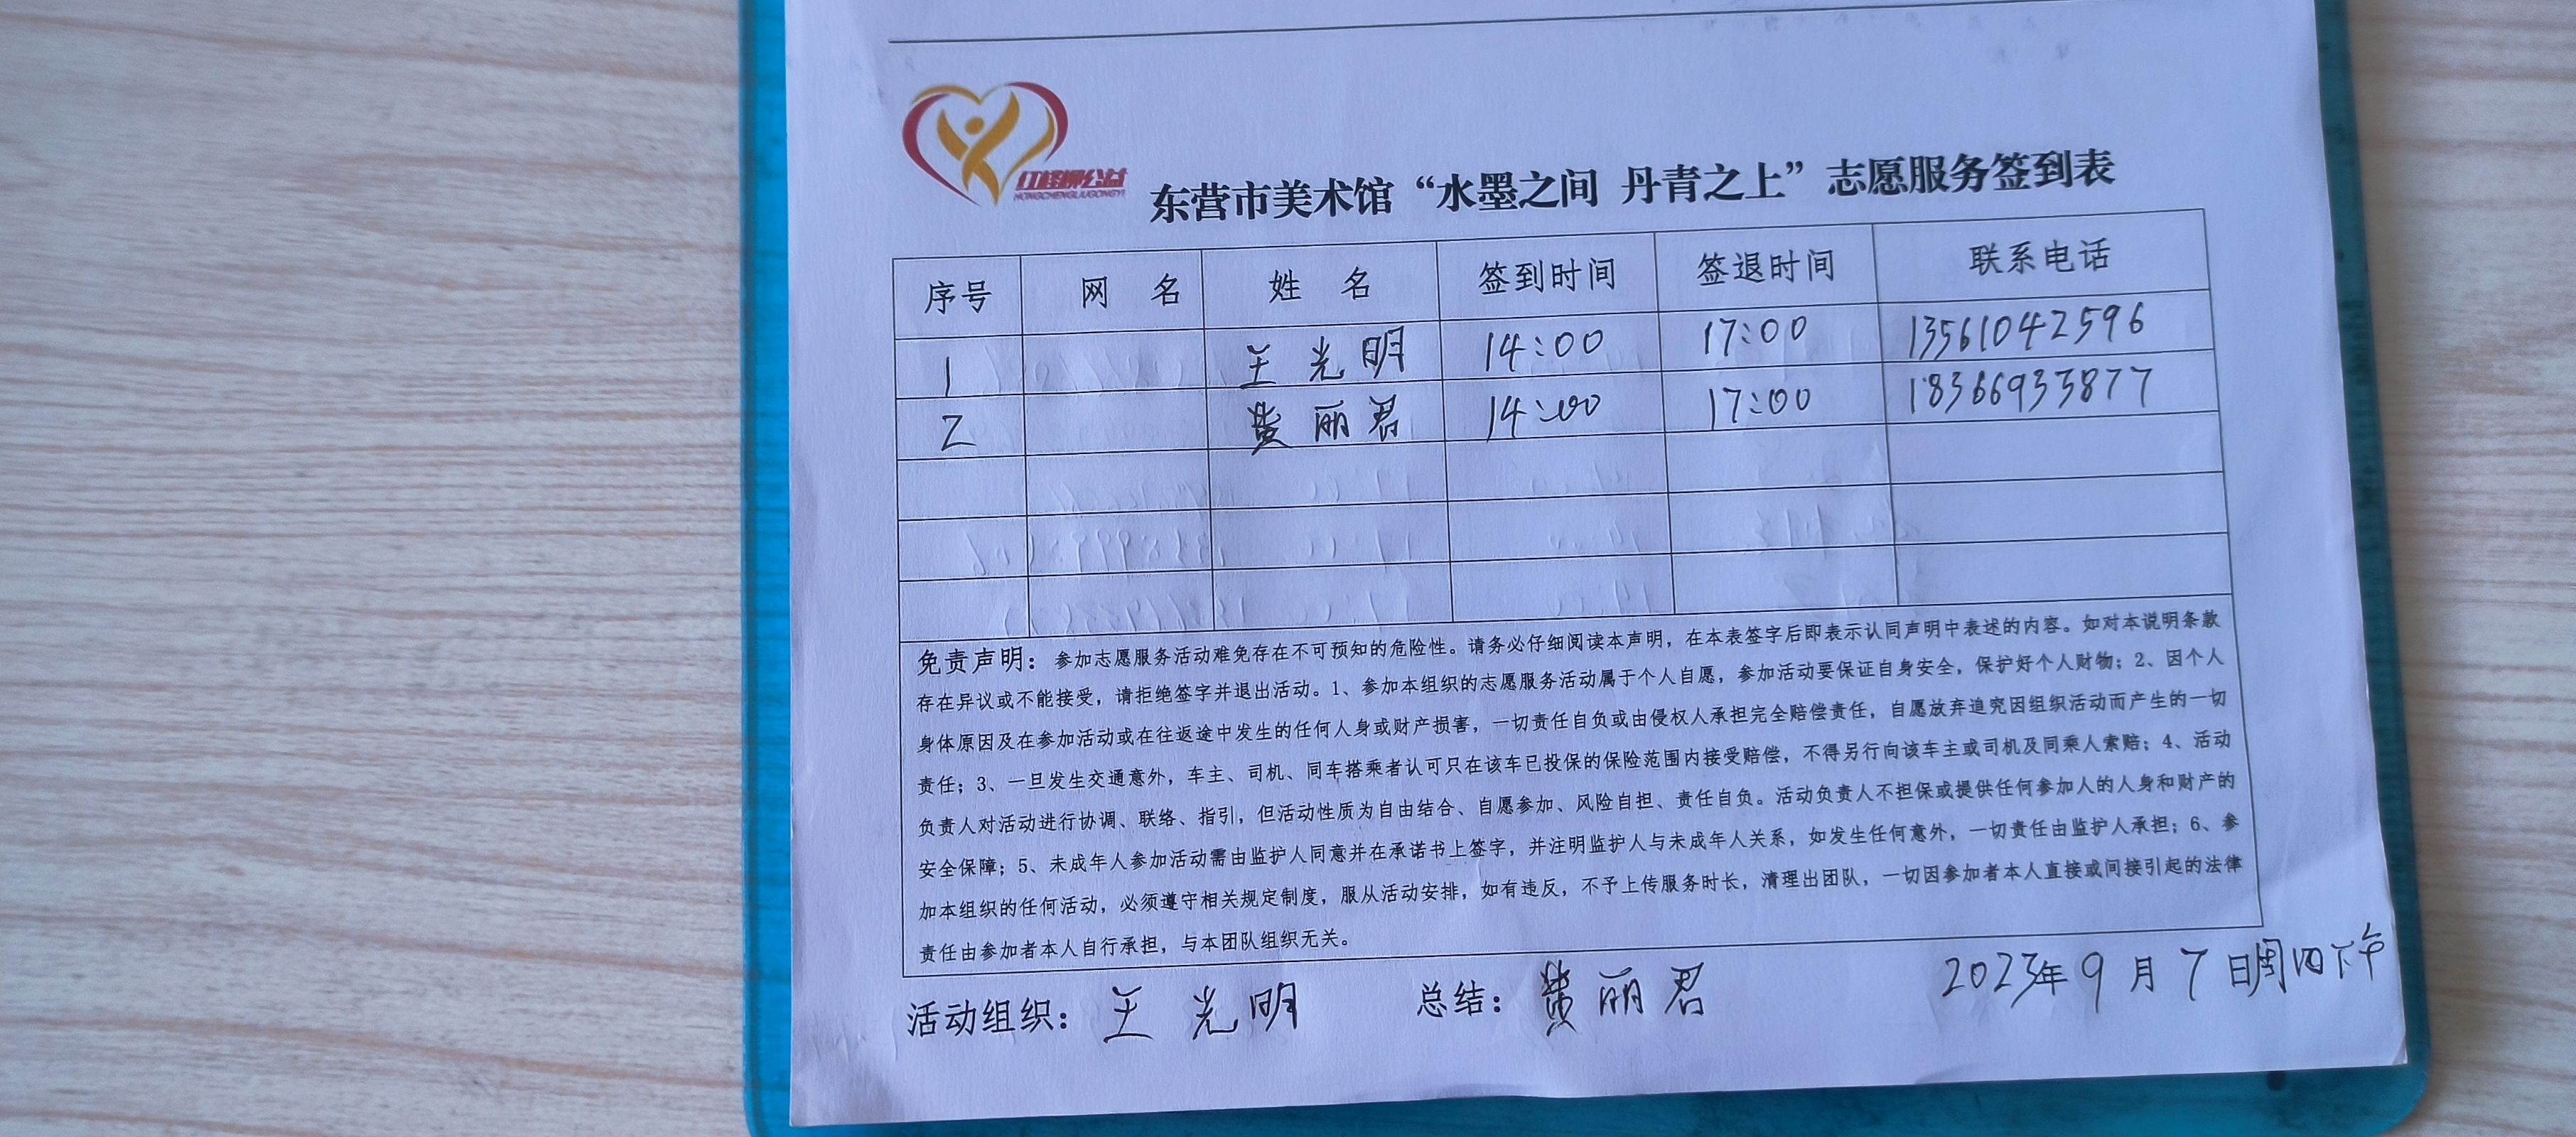 红柽柳公益
HONGCHENGLIUGONGYI
东营市美术馆“水墨之间 丹青之上”志愿服务签到表
序号 网 名 姓 名 签到时间 签退时间 联系电话
1 王光明 14:00 17:00 13561042596
2 黄丽君 14:00 17:00 18366933877
免责声明：参加志愿服务活动难免存在不可预知的危险性。请务必仔细阅读本声明，在本表签字后即表示认同声明中表述的内容。如对本说明条款
存在异议或不能接受，请拒绝签字并退出活动。1、参加本组织的志愿服务活动属于个人自愿，参加活动要保证自身安全，保护好个人财物；2、因个人
身体原因及在参加活动或在往返途中发生的任何人身或财产损害，一切责任自负或由侵权人承担完全赔偿责任，自愿放弃追究因组织活动而产生的一切
责任；3、一旦发生交通意外，车主、司机、同车搭乘者认可只在该车已投保的保险范围内接受赔偿，不得另行向该车主或司机及同乘人索赔；4、活动
负责人对活动进行协调、联络、指引，但活动性质为自由结合、自愿参加、风险自担、责任自负。活动负责人不担保或提供任何参加人的人身和财产的
安全保障；5、未成年人参加活动需由监护人同意并在承诺书上签字，并注明监护人与未成年人关系，如发生任何意外，一切责任由监护人承担；6、参
加本组织的任何活动，必须遵守相关规定制度，服从活动安排，如有违反，不予上传服务时长，清理出团队，一切因参加者本人直接或间接引起的法律
责任由参加者本人自行承担，与本团队组织无关。
活动组织：王光明 总结：黄丽君 2023年9月7日周四下午